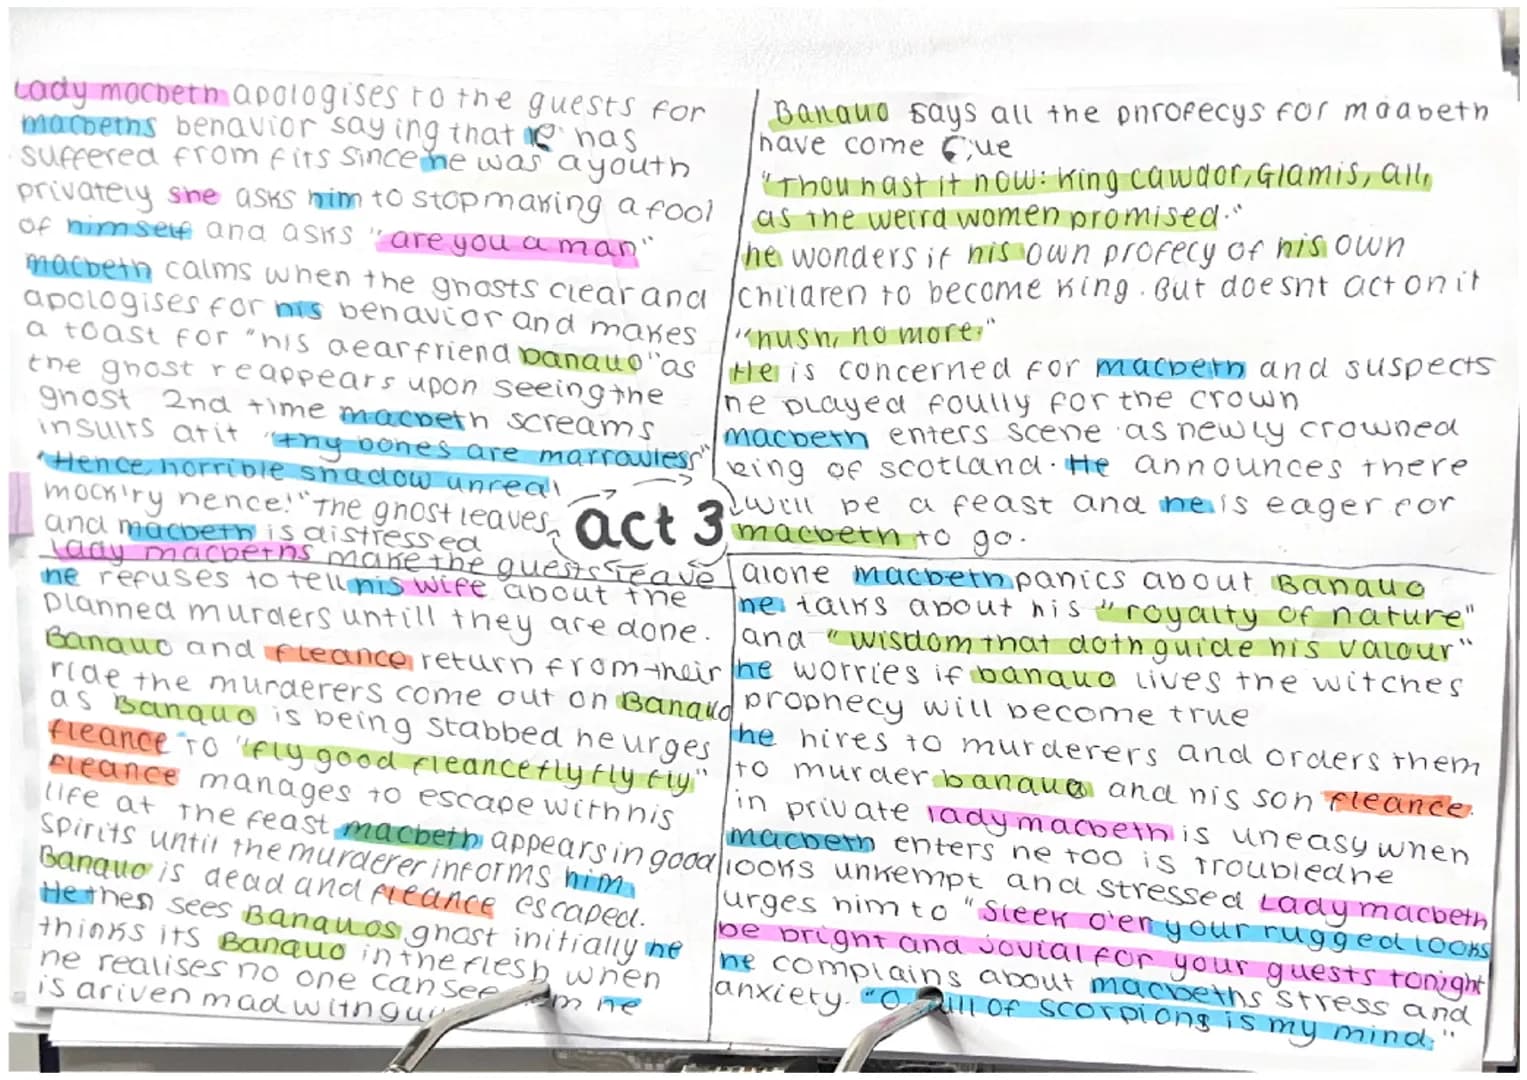 Lady macbeth apologises to the guests for
macbeths behavior saying that he has
suffered from fits since he was a youth
privately she asks him to stop making a fool
of himself and asks "are you a man"
macbeth calms when the ghosts clear and
apologises for his behavior and makes
a toast for "his dear friend banquo" as
the ghost reappears upon seeing the
ghost 2nd time macbeth screams
insults at it "thy bones are marrowless"
"Hence horrible shadow unreal
mock'ry hence!" The ghost leaves
and macbeth is distressed
Lady macbeths make the guests leave
act 3
Banquo says all the phrofecys for macbeth
have come true
"Thou hast it now: King cawdor, Glamis, all,
as the weird women promised."
he wonders if his own profecy of his own
children to become King. But doesnt act on it
"hush, no more."
He is concerned for macbeth and suspects
he played foully for the crown
macbeth enters scene as newly crowned
king of scotland. He announces there
will be a feast and he is eager for
macbeth to go.
he refuses to tell his wife about the
planned murders untill they are done.
Banquo and fleance return from their
ride the murderers come out on Banquo
as Banquo is being stabbed he urges
fleance to "fly good fleance fly fly fly"
fleance manages to escape with his
life at the feast macbeth appears in good
spirits until the murderer informs him
Banquo is dead and fleance escaped.
He then sees Banquos ghost initially he
thinks its Banquo in the flesh when
he realises no one can see him he
is driven mad with
alone macbeth panics about Banquo
he talks about his "royalty of nature"
and "wisdom that doth guide his valour"
he worries if banquo lives the witches
prophecy will become true
he hires to murderers and orders them
to murder banquo and his son fleance.
in private lady macbeth is uneasy when
macbeth enters he too is troubled he
looks unkempt and stressed Lady macbeth
urges him to "Sleek o'er your rugged looks
be bright and jovial for your guests tonight
he complains about macbeths stress and
anxiety. "O full of scorpions is my mind."